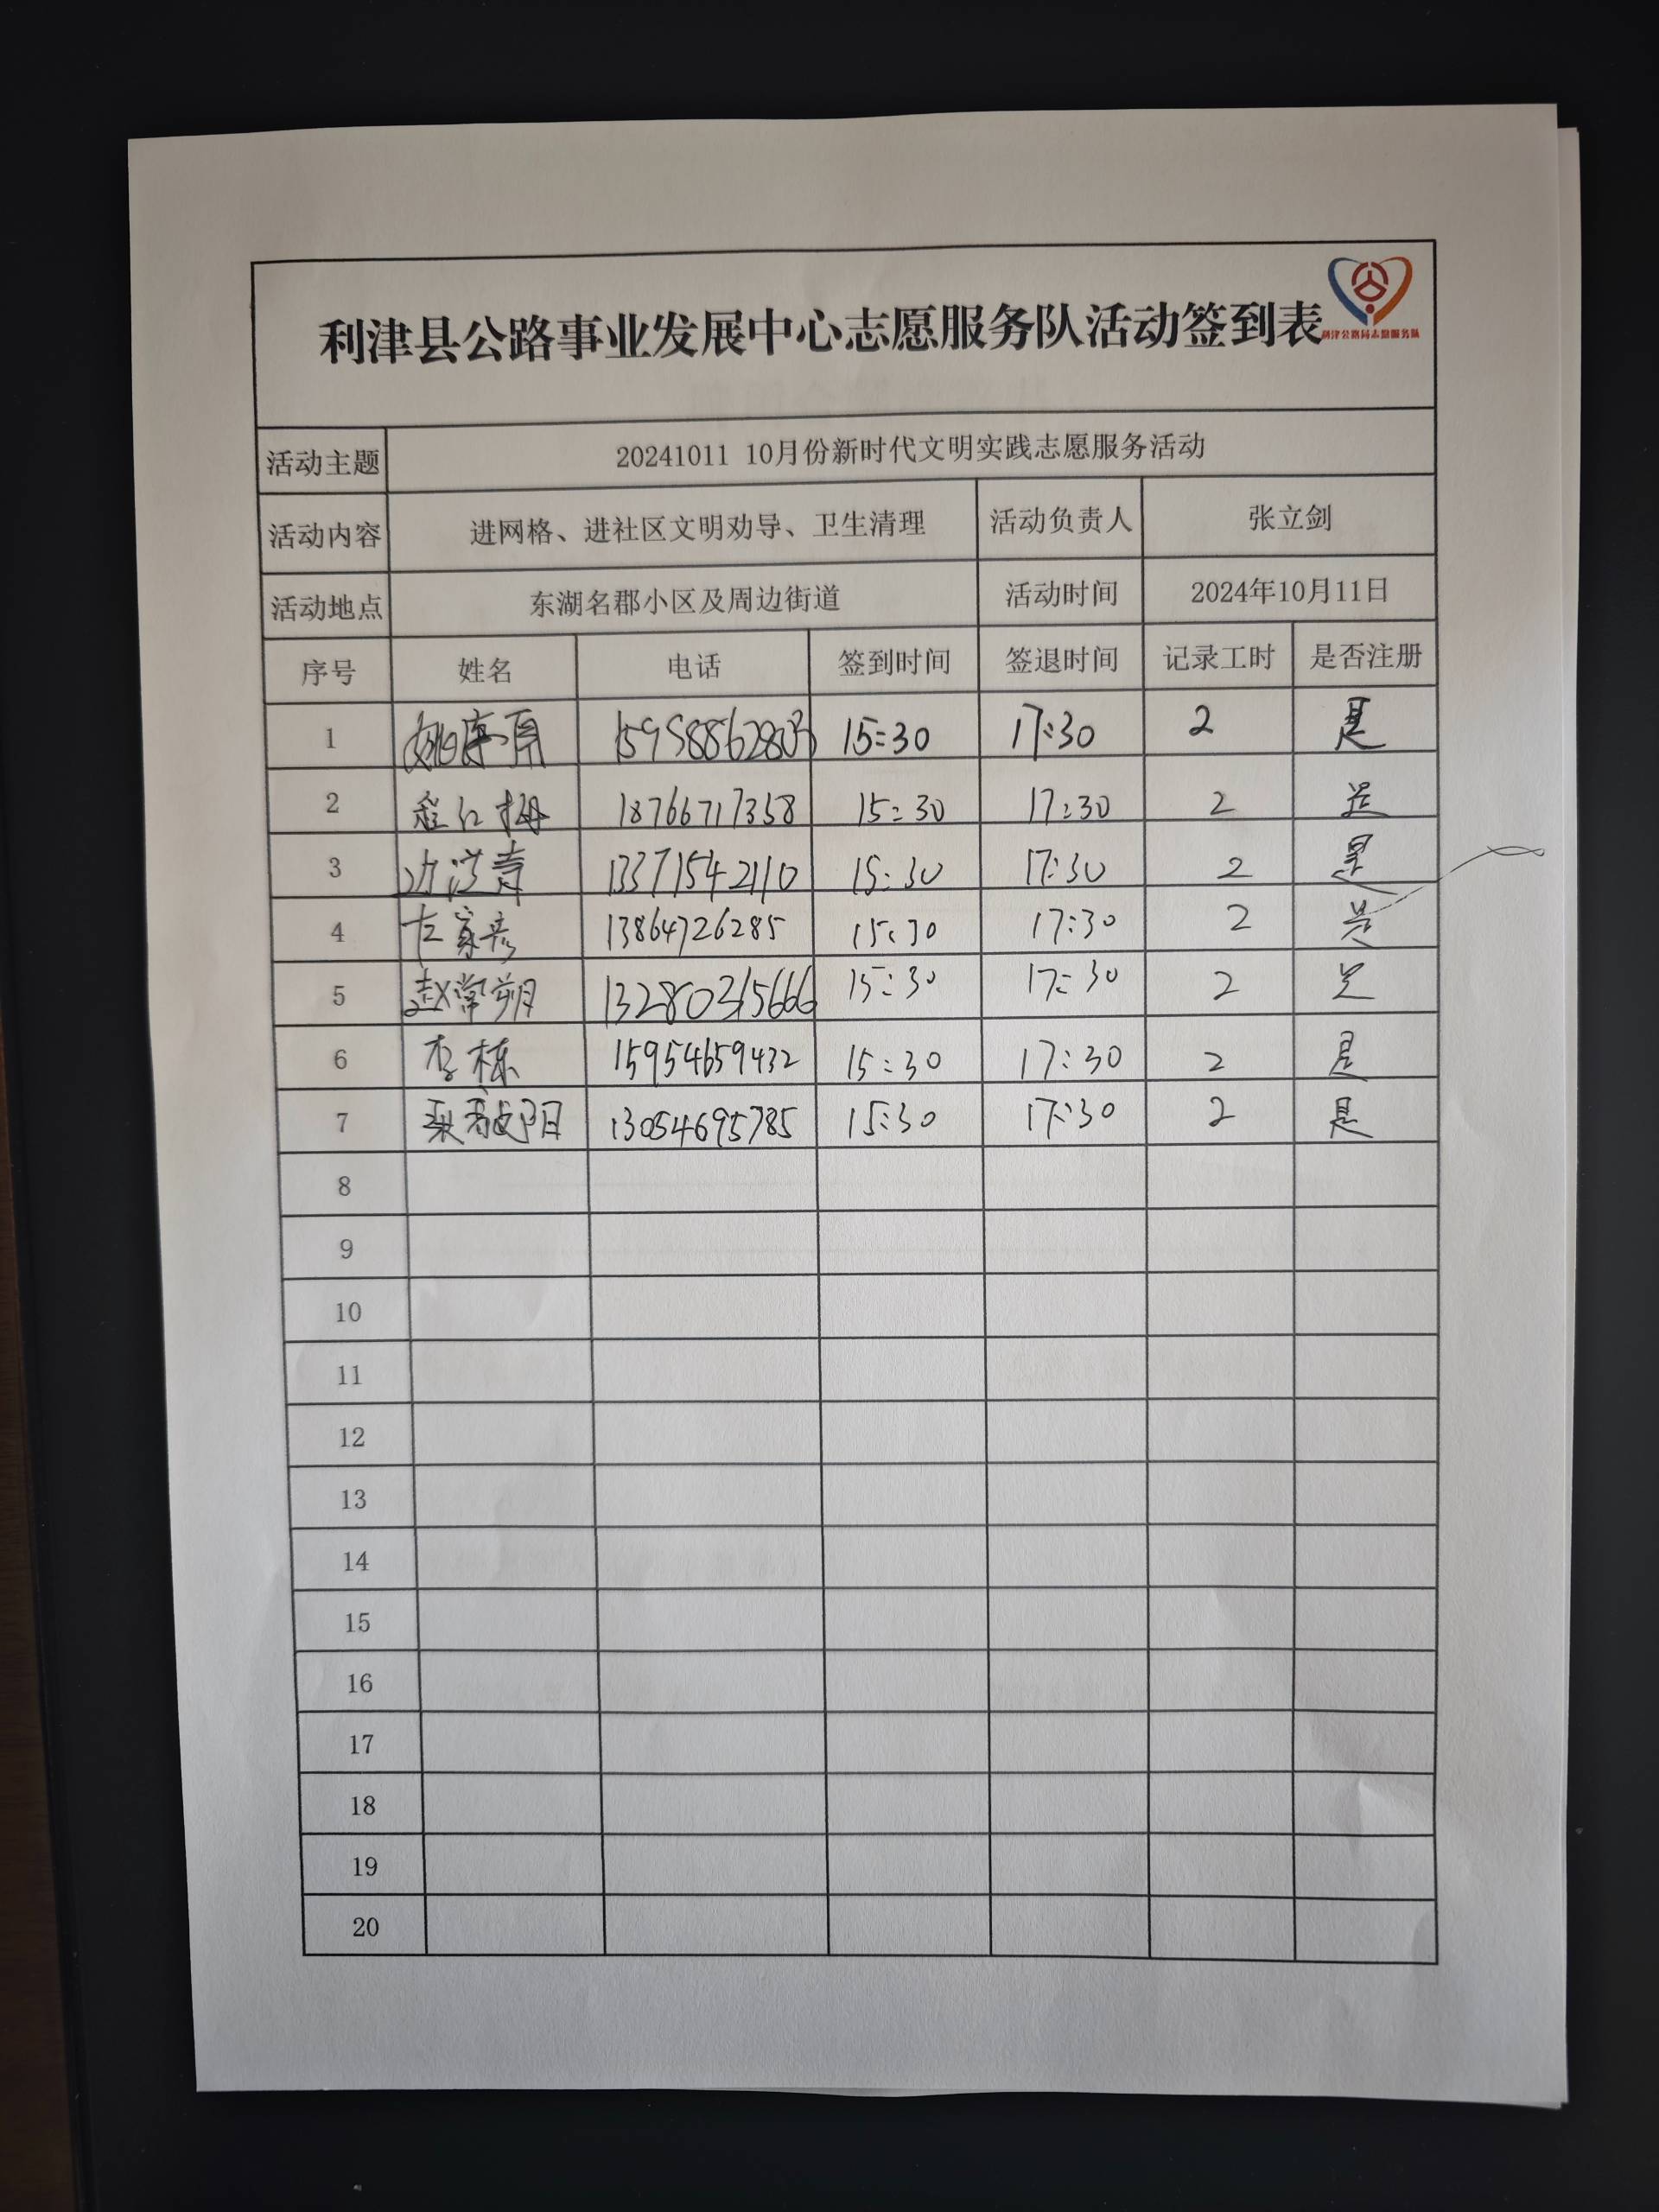 利津县公路事业发展中心志愿服务队活动签到表
利津公路局志愿服务队
活动主题 20241011 10月份新时代文明实践志愿服务活动
活动内容 进网格、进社区文明劝导、卫生清理 活动负责人 张立剑
活动地点 东湖名郡小区及周边街道 活动时间 2024年10月11日
序号 姓名 电话 签到时间 签退时间 记录工时 是否注册
1 15:30 17:30 2 是
2 程红梅 18766717358 15:30 17:30 2 是
3 13371542110 15:30 17:30 2 是
4 13864726285 15:30 17:30 2 是
5 赵常朔 13280315666 15:30 17:30 2 是
6 李栋 15954659432 15:30 17:30 2 是
7 13054695785 15:30 17:30 2 是
8
9
10
11
12
13
14
15
16
17
18
19
20